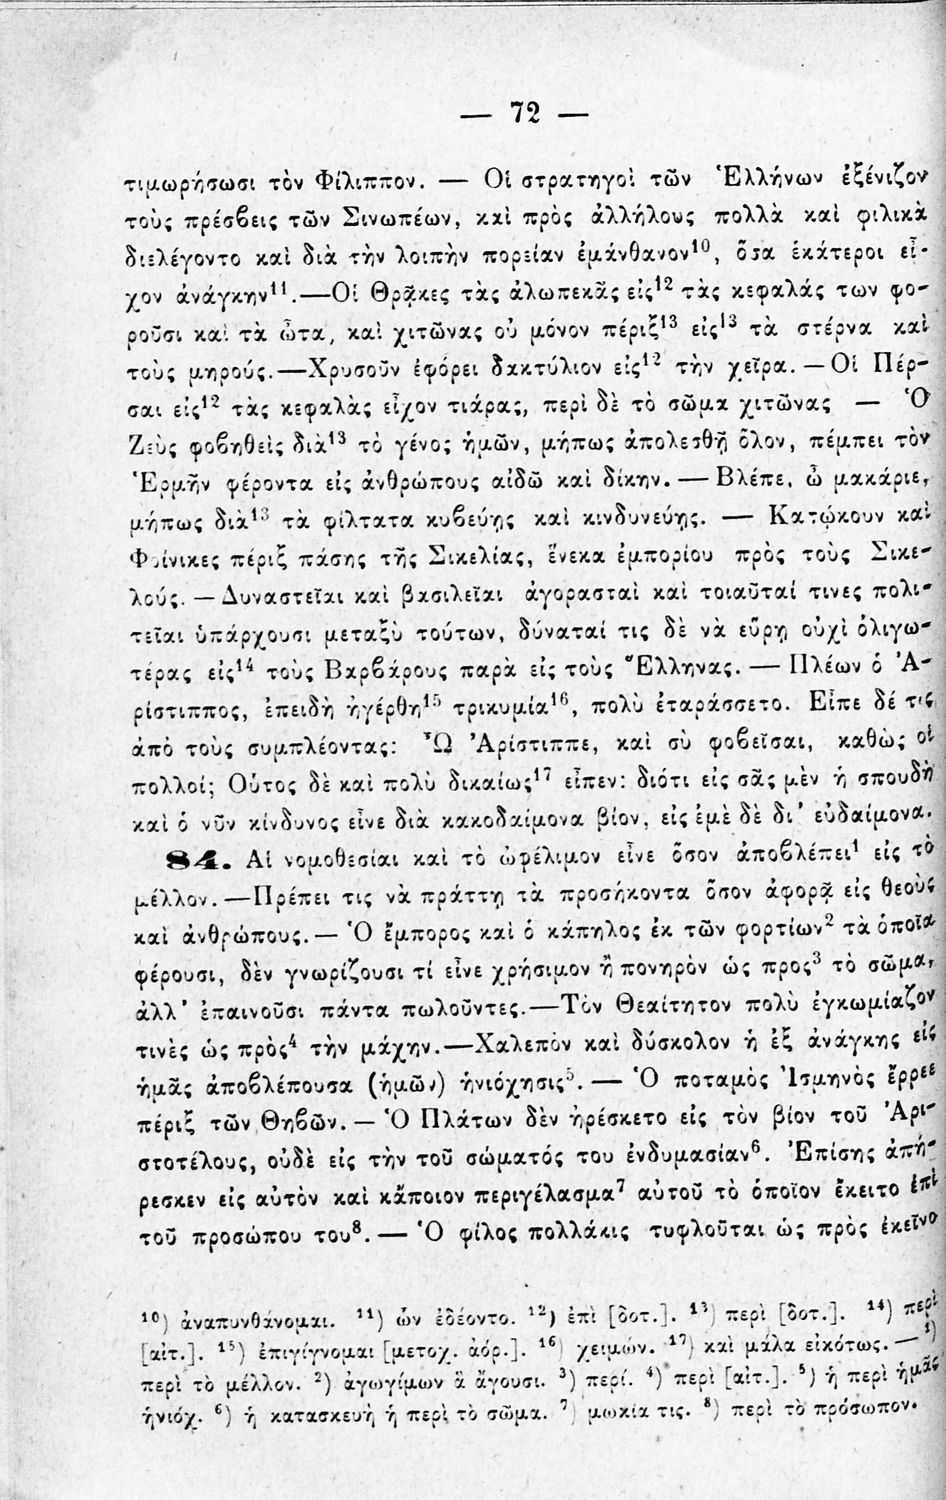 — 72 —
τιμωρήσωσι τὸν Φίλιππον. — Οἱ στρατηγοὶ τῶν Ἑλλήνων ἐξένιζον
τοὺς πρέσβεις τῶν Σινωπέων, καὶ πρὸς ἀλλήλους πολλὰ καὶ φιλικὰ
διελέγοντο καὶ διὰ τὴν λοιπὴν πορείαν ἐμάνθανον¹⁰, ὅσα ἑκάτεροι εἶ-
χον ἀνάγκην¹¹.—Οἱ Θρᾷκες τὰς ἀλωπεκᾶς εἰς¹² τὰς κεφαλάς των φο-
ροῦσι καὶ τὰ ὦτα, καὶ χιτῶνας οὐ μόνον πέριξ¹³ εἰς¹³ τὰ στέρνα καὶ
τοὺς μηρούς.—Χρυσοῦν ἐφόρει δακτύλιον εἰς¹² τὴν χεῖρα.—Οἱ Πέρ-
σαι εἰς¹² τὰς κεφαλὰς εἶχον τιάρας, περὶ δὲ τὸ σῶμα χιτῶνας — Ὁ
Ζεὺς φοβηθεὶς διὰ¹³ τὸ γένος ἡμῶν, μήπως ἀπολεσθῇ ὅλον, πέμπει τὸν
Ἑρμῆν φέροντα εἰς ἀνθρώπους αἰδῶ καὶ δίκην. — Βλέπε, ὦ μακάριε,
μήπως διὰ¹³ τὰ φίλτατα κυβεύῃς καὶ κινδυνεύῃς. — Κατῴκουν καὶ
Φοίνικες πέριξ πάσης τῆς Σικελίας, ἕνεκα ἐμπορίου πρὸς τοὺς Σικε-
λούς. — Δυναστεῖαι καὶ βασιλεῖαι ἀγορασταὶ καὶ τοιαῦταί τινες πολι-
τεῖαι ὑπάρχουσι μεταξὺ τούτων, δύναταί τις δὲ νὰ εὕρῃ οὐχὶ ὀλιγω-
τέρας εἰς¹⁴ τοὺς Βαρβάρους παρὰ εἰς τοὺς Ἕλληνας. — Πλέων ὁ Ἀ-
ρίστιππος, ἐπειδὴ ἠγέρθη¹⁵ τρικυμία¹⁶, πολὺ ἐταράσσετο. Εἶπε δέ τις
ἀπὸ τοὺς συμπλέοντας: Ὦ Ἀρίστιππε, καὶ σὺ φοβεῖσαι, καθὼς οἱ
πολλοί; Οὗτος δὲ καὶ πολὺ δικαίως¹⁷ εἶπεν: διότι εἰς σᾶς μὲν ἡ σπουδὴ
καὶ ὁ νῦν κίνδυνος εἶνε διὰ κακοδαίμονα βίον, εἰς ἐμὲ δὲ δι' εὐδαίμονα.
84. Αἱ νομοθεσίαι καὶ τὸ ὠφέλιμον εἶνε ὅσον ἀποβλέπει¹ εἰς τὸ
μέλλον.—Πρέπει τις νὰ πράττῃ τὰ προσήκοντα ὅσον ἀφορᾷ εἰς θεοὺς
καὶ ἀνθρώπους.— Ὁ ἔμπορος καὶ ὁ κάπηλος ἐκ τῶν φορτίων² τὰ ὁποῖα
φέρουσι, δὲν γνωρίζουσι τί εἶνε χρήσιμον ἢ πονηρὸν ὡς προς³ τὸ σῶμα,
ἀλλ' ἐπαινοῦσι πάντα πωλοῦντες.—Τὸν Θεαίτητον πολὺ ἐγκωμίαζον
τινὲς ὡς πρὸς⁴ τὴν μάχην.—Χαλεπὸν καὶ δύσκολον ἡ ἐξ ἀνάγκης εἰς
ἡμᾶς ἀποβλέπουσα (ἡμῶν) ἡνιόχησις⁵. — Ὁ ποταμὸς Ἰσμηνὸς ἔρρεε
πέριξ τῶν Θηβῶν. — Ὁ Πλάτων δὲν ἠρέσκετο εἰς τὸν βίον τοῦ Ἀρι-
στοτέλους, οὐδὲ εἰς τὴν τοῦ σώματός του ἐνδυμασίαν⁶. Ἐπίσης ἀπή-
ρεσκεν εἰς αὐτὸν καὶ κἄποιον περιγέλασμα⁷ αὐτοῦ τὸ ὁποῖον ἔκειτο ἐπὶ
τοῦ προσώπου του⁸. — Ὁ φίλος πολλάκις τυφλοῦται ὡς πρὸς ἐκεῖνο
¹⁰) ἀναπυνθάνομαι. ¹¹) ὧν ἐδέοντο. ¹²) ἐπὶ [δοτ.]. ¹³) περὶ [δοτ.]. ¹⁴) περὶ
[αἰτ.]. ¹⁵) ἐπιγίγνομαι [μετοχ. ἀόρ.]. ¹⁶) χειμών. ¹⁷) καὶ μάλα εἰκότως. — ¹)
περὶ τὸ μέλλον. ²) ἀγωγίμων ἃ ἄγουσι. ³) περί. ⁴) περὶ [αἰτ.]. ⁵) ἡ περὶ ἡμᾶς
ἡνιόχ. ⁶) ἡ κατασκευὴ ἡ περὶ τὸ σῶμα. ⁷) μωκία τις. ⁸) περὶ τὸ πρόσωπον.